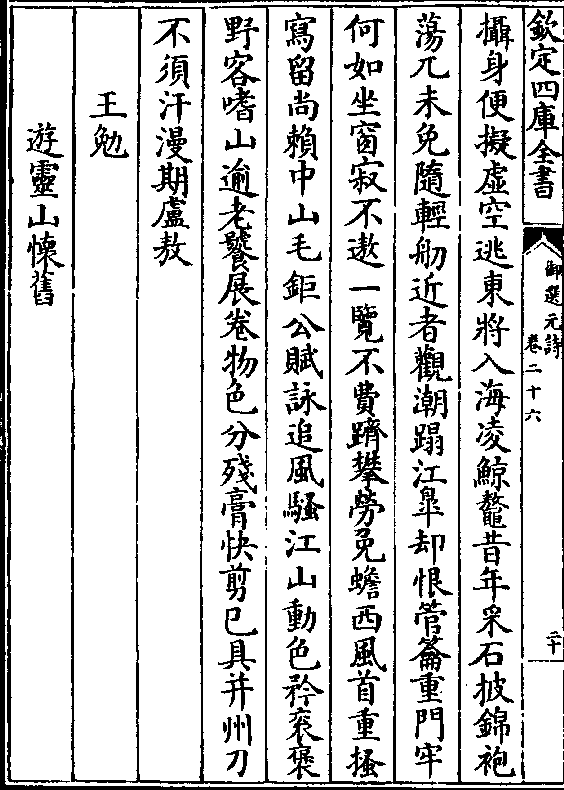 欽定四庫全書
御選元詩
卷二十六
二十
攝身便擬虛空逃東將入海凌鯨鼇昔年采石披錦袍
蕩兀未免隨輕舠近者觀潮蹋江臯却恨管籥重門牢
何如坐窗寂不遨一覽不費躋攀勞兔蟾西風首重搔
寫留尚賴中山毛鉅公賦詠追風騷江山動色矜衮褒
野客嗜山逾老饕展卷物色分殘膏快剪已具并州刀
不須汗漫期盧敖
王勉
遊靈山懷舊